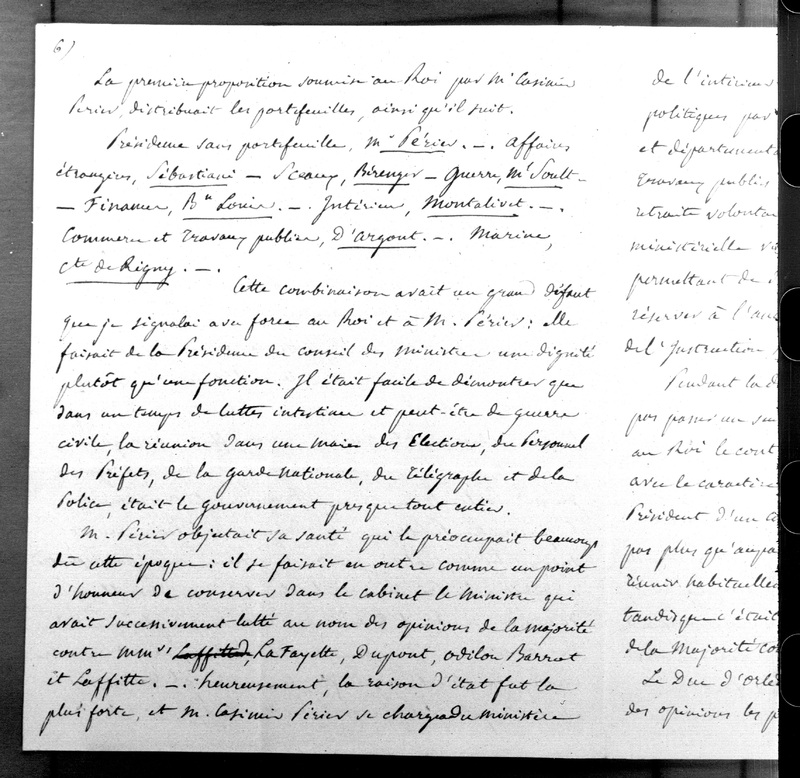 6)
La première proposition soumise au Roi par Mr Casimir
Perier, distribuait les portefeuilles, ainsi qu'il suit.
Présidence sans portefeuille, Mr Périer. —. Affaires
étrangères, Sébastiani — Sceaux, Bérenger — Guerre, Ml Soult —
— Finances, Bn Louis. —. Intérieur, Montalivet. —.
Commerce et travaux publics, D'argout. —. Marine,
Cte de Rigny. —.
Cette combinaison avait un grand défaut
que je signalai avec force au Roi et à M. Périer: elle
faisait de la Présidence du conseil des ministres une dignité
plutôt qu'une fonction. Il était facile de démontrer que
dans un temps de luttes intestines et peut-être de guerre
civile, la réunion dans une main des Elections, du Personnel
des Préfets, de la Garde nationale, du Télégraphe et de la
Police, était le gouvernement presque tout entier.
M. Périer objectait sa santé qui le préoccupait beaucoup
dès cette époque: il se faisait en outre comme un point
d'honneur de conserver dans le cabinet le ministre qui
avait successivement lutté au nom des opinions de la majorité
contre MMrs Laffitte, La Fayette, Dupont, Odilon Barrot
et Laffitte. —. heureusement, la raison d'état fut la
plus forte, et M. Casimir Périer se chargea du ministère
de l'intérieur
politiques par
et départementa
travaux publics
retraite volontai
ministérielle
permettant de
réserver à l'an
de l'Instruction
Pendant la d
pas passé un seu
au Roi le cont
avec le caractère
Président d'un C
pas plus qu'aupa
réunir habituellem
tandis que c'était
de la Majorité co
Le Duc d'Orlé
des opinions les p